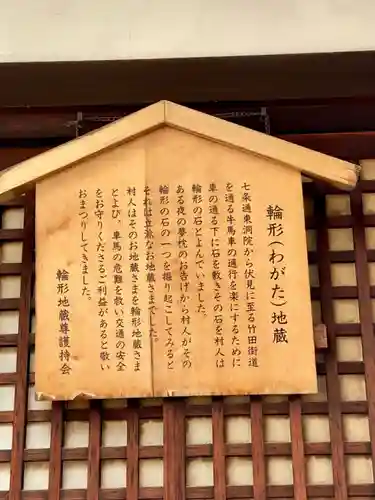 輪形(わがた)地蔵
七条通東洞院から伏見に至る竹田街道
を通る牛馬車の通行を楽にするために
車の通る下に石を敷きその石を村人は
輪形の石とよんでいました。
ある夜の夢枕のお告げから村人がその
輪形の石の一つを掘り起こしてみると
それは立派なお地蔵さまでした。
村人はそのお地蔵さまを輪形地蔵さま
とよび、車馬の危難を救い交通の安全
をお守りくださるご利益があると敬い
おまつりしてきました。
輪形地蔵尊護持会